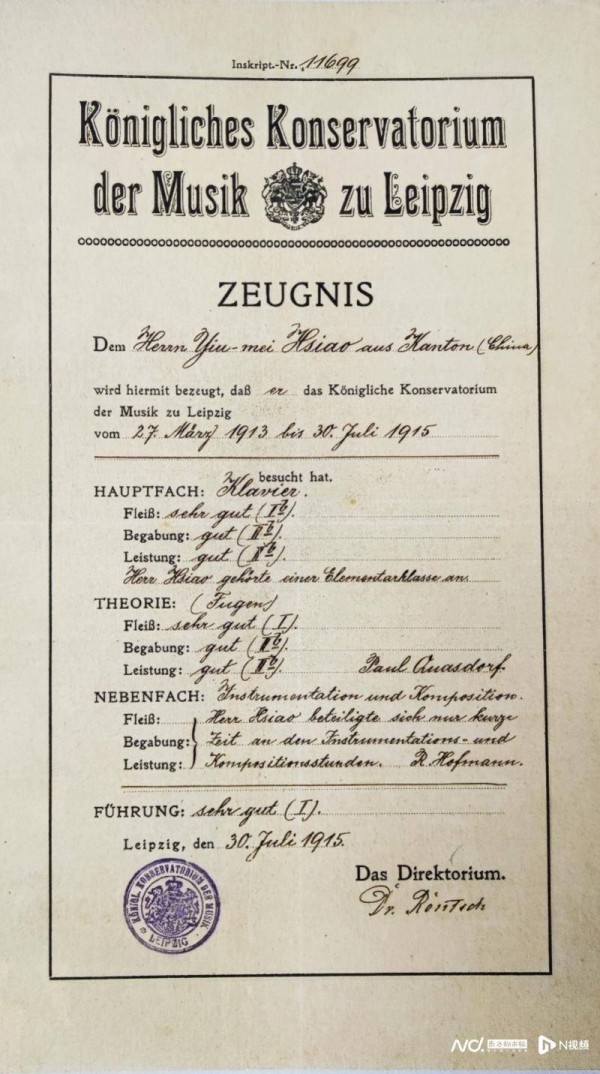 Inskript.-Nr. 11699
Königliches Konservatorium
der Musik zu Leipzig
ZEUGNIS
Dem Herrn Yiu-mei Hsiao aus Kanton (China)
wird hiermit bezeugt, daß er das Königliche Konservatorium
der Musik zu Leipzig
vom 27. März 1913 bis 30. Juli 1915
besucht hat.
HAUPTFACH: Klavier.
Fleiß: sehr gut (Ib).
Begabung: gut (IIb).
Leistung: gut (IIb).
Herr Hsiao gehörte einer Elementarklasse an.
THEORIE: (Fugen)
Fleiß: sehr gut (I).
Begabung: gut (IIb).
Leistung: gut (IIb). Paul Quasdorf.
NEBENFACH: Instrumentation und Komposition.
Fleiß: Herr Hsiao beteiligte sich nur kurze
Begabung: Zeit an den Instrumentations- und
Leistung: Kompositionsstunden. R. Hofmann.
FÜHRUNG: sehr gut (I).
Leipzig, den 30. Juli 1915.
Das Direktorium.
Dr. Röntsch
KÖNIGL. KONSERVATORIUM DER MUSIK
LEIPZIG
N视频